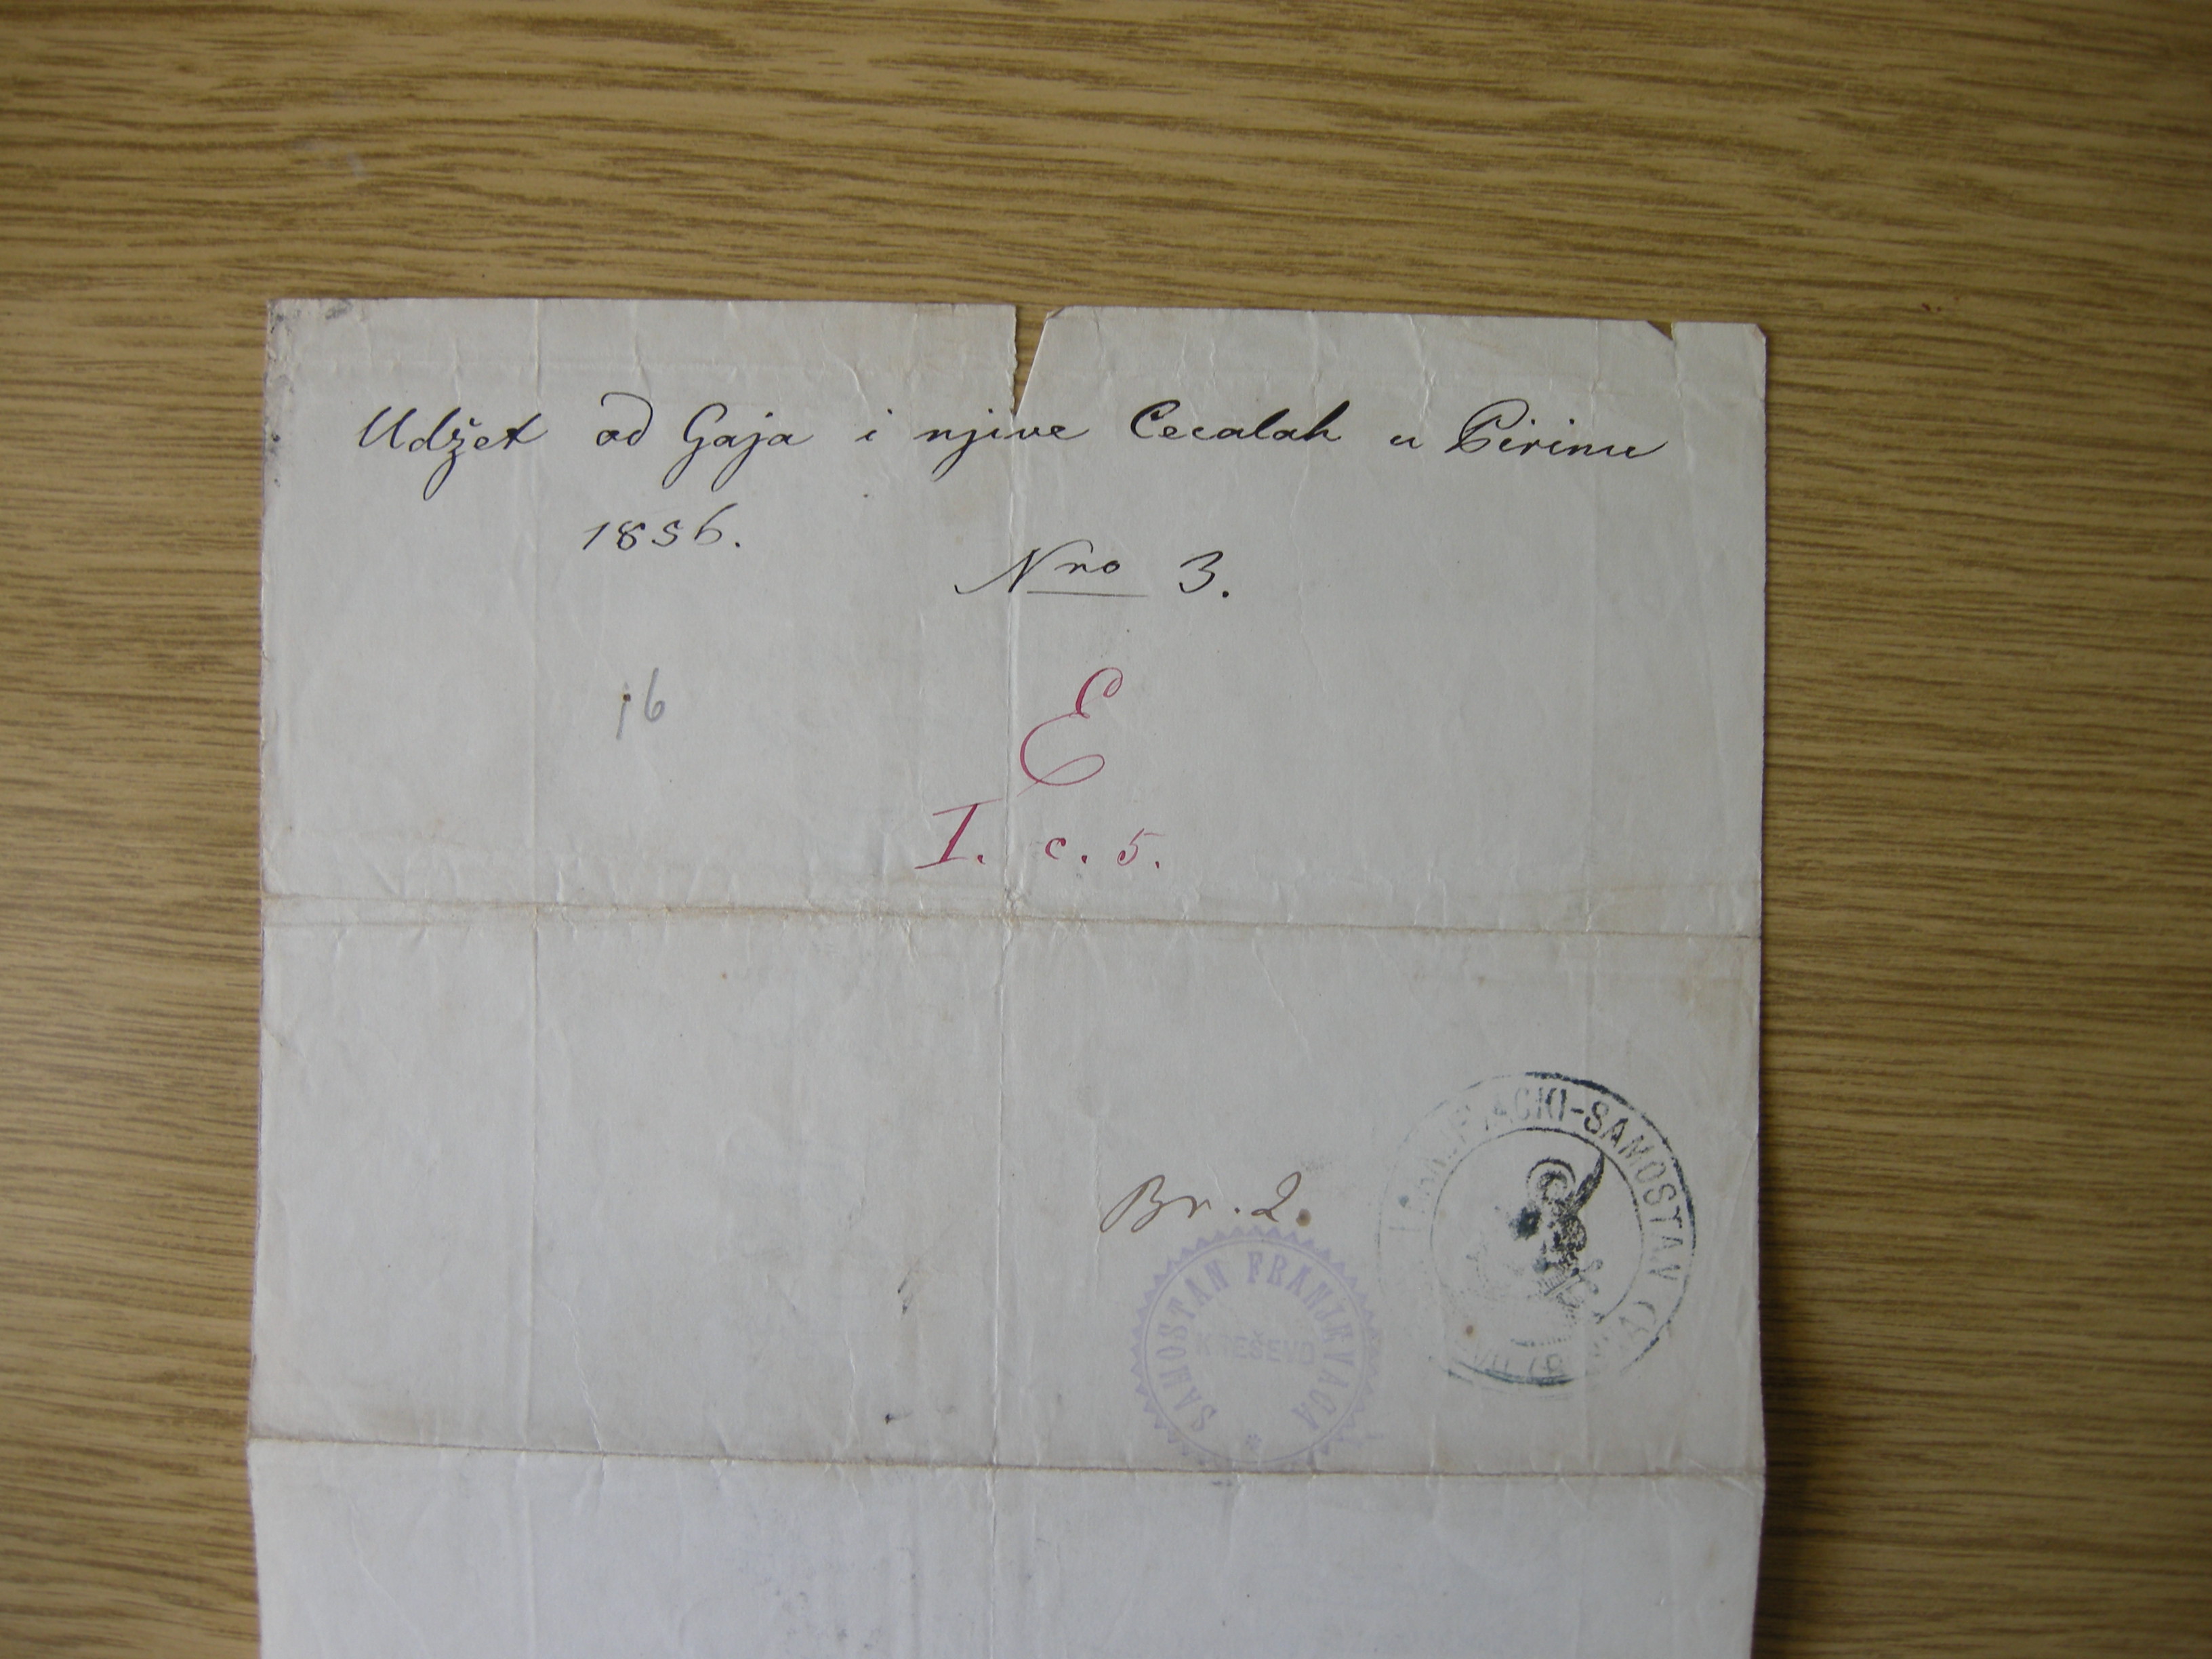 Udžet od Gaja i njive Cecalah u Pirinu
1856.
Nro 3.
16
E
I. c. 5.
Br. 2.
SAMOSTAN FRANJEVACA
KREŠEVO
SAMOSTAN